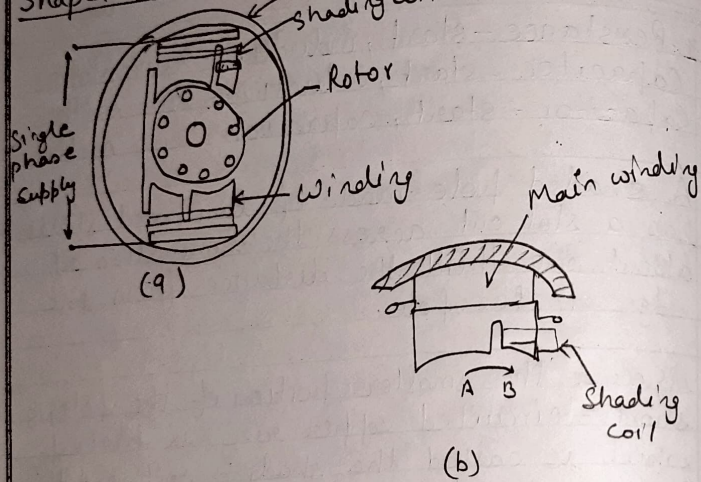 Shading
Rotor
Single
phase
supply
Winding
(a)
Main winding
A B
Shading
coil
(b)